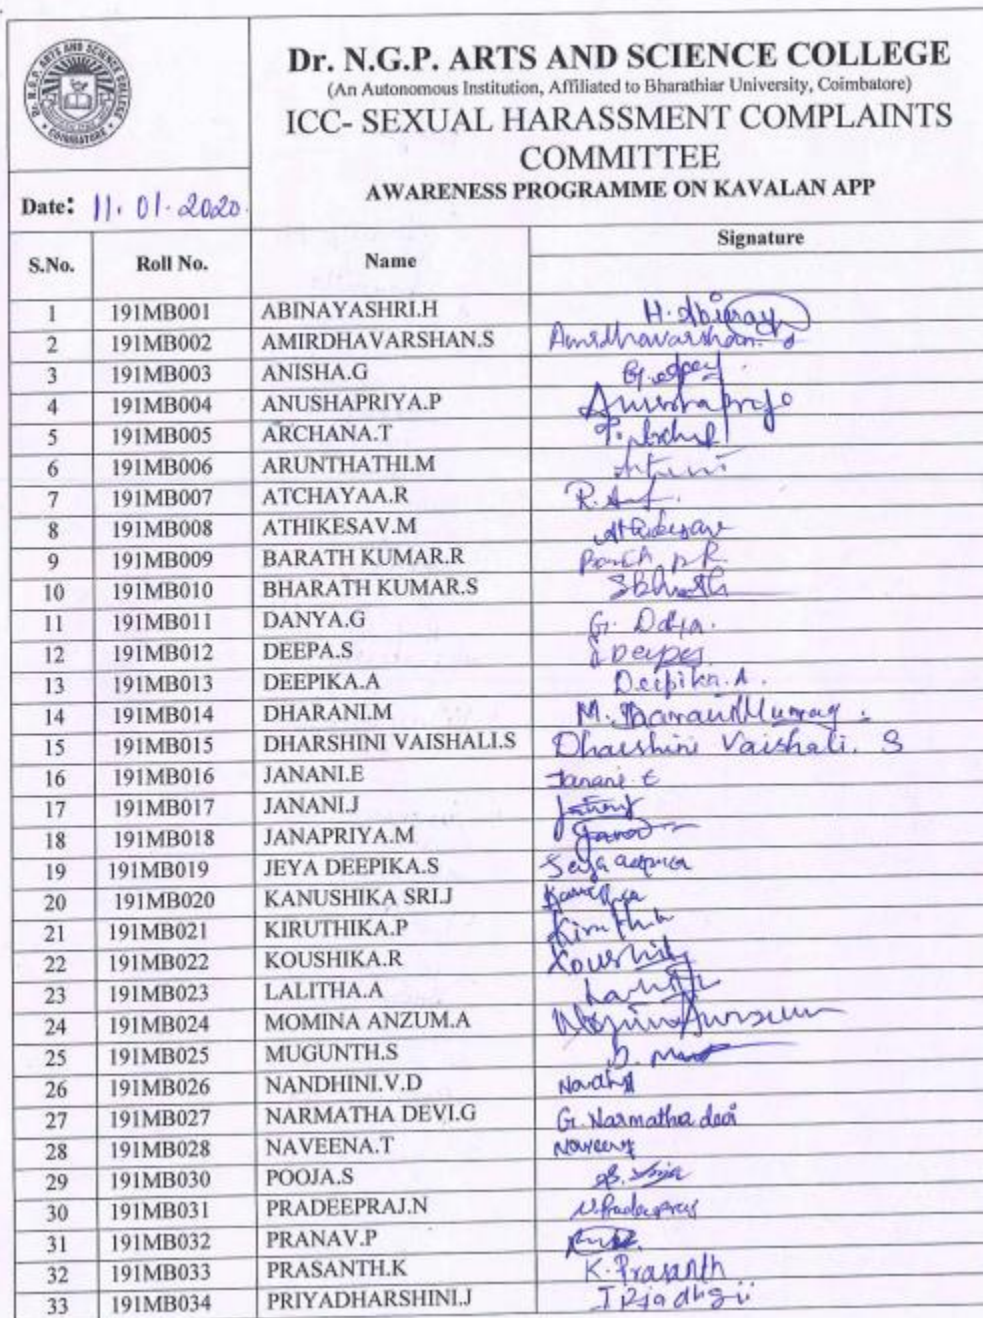 Dr. N.G.P. ARTS AND SCIENCE COLLEGE
COIMBATORE
Dr. N.G.P. ARTS AND SCIENCE COLLEGE
(An Autonomous Institution, Affiliated to Bharathiar University, Coimbatore)
ICC- SEXUAL HARASSMENT COMPLAINTS
COMMITTEE
AWARENESS PROGRAMME ON KAVALAN APP
Date: 11.01.2020
S.No. Roll No. Name Signature
1 191MB001 ABINAYASHRI.H
2 191MB002 AMIRDHAVARSHAN.S Amirdhavarshan.
3 191MB003 ANISHA.G
4 191MB004 ANUSHAPRIYA.P
5 191MB005 ARCHANA.T
6 191MB006 ARUNTHATHI.M
7 191MB007 ATCHAYAA.R
8 191MB008 ATHIKESAV.M
9 191MB009 BARATH KUMAR.R
10 191MB010 BHARATH KUMAR.S
11 191MB011 DANYA.G
12 191MB012 DEEPA.S
13 191MB013 DEEPIKA.A Deepika.A.
14 191MB014 DHARANI.M
15 191MB015 DHARSHINI VAISHALI.S Dharshini Vaishali. S
16 191MB016 JANANI.E Janani E
17 191MB017 JANANI.J
18 191MB018 JANAPRIYA.M
19 191MB019 JEYA DEEPIKA.S
20 191MB020 KANUSHIKA SRI.J
21 191MB021 KIRUTHIKA.P
22 191MB022 KOUSHIKA.R
23 191MB023 LALITHA.A
24 191MB024 MOMINA ANZUM.A
25 191MB025 MUGUNTH.S
26 191MB026 NANDHINI.V.D
27 191MB027 NARMATHA DEVI.G G. Narmatha devi
28 191MB028 NAVEENA.T
29 191MB030 POOJA.S
30 191MB031 PRADEEPRAJ.N
31 191MB032 PRANAV.P
32 191MB033 PRASANTH.K K. Prasanth
33 191MB034 PRIYADHARSHINI.J